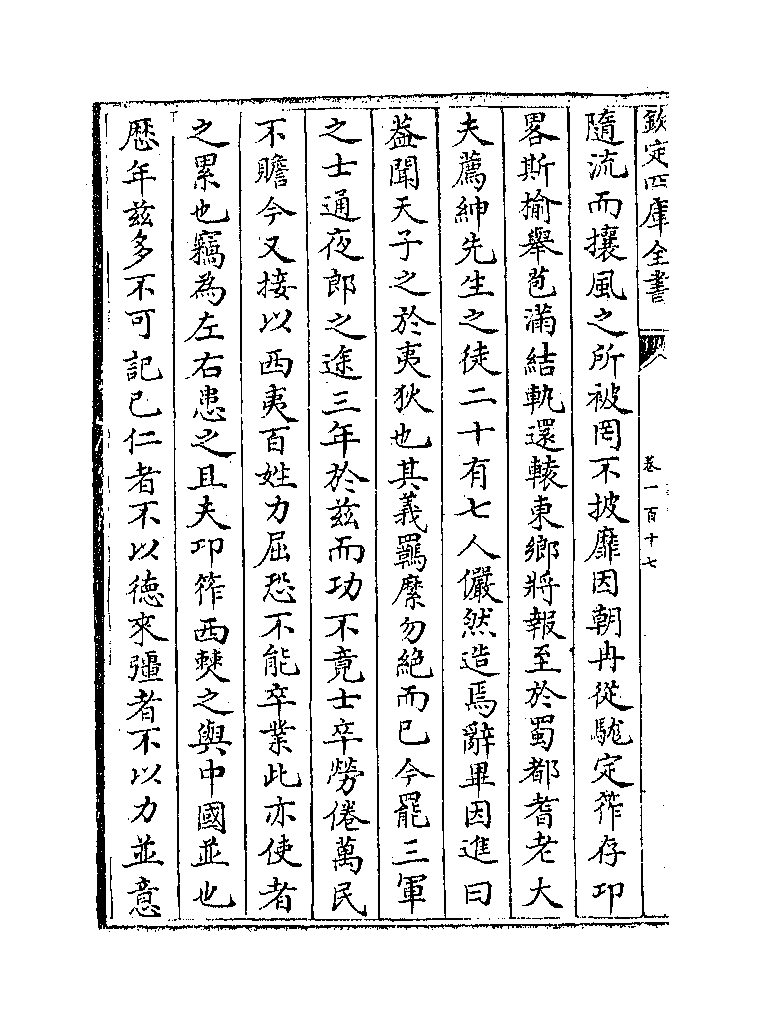 欽定四庫全書
卷一百十七
隨流而攘風之所被罔不披靡因朝冉從駹定筰存邛
畧斯榆舉苞滿結軌還轅東鄉將報至於蜀都耆老大
夫薦紳先生之徒二十有七人儼然造焉辭畢因進曰
葢聞天子之於夷狄也其義羈縻勿絕而已今罷三軍
之士通夜郎之途三年於茲而功不竟士卒勞倦萬民
不贍今又接以西夷百姓力屈恐不能卒業此亦使者
之累也竊為左右患之且夫邛筰西僰之與中國並也
歷年茲多不可記已仁者不以德來彊者不以力並意